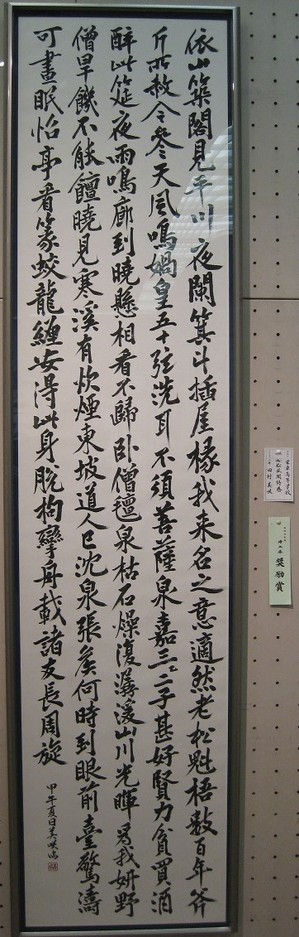 依山築閣見平川夜闌箕斗插屋椽我来名之意適然老松魁梧數百年斧
斤所赦今參天風鳴媧皇五十弦洗耳不須菩薩泉嘉三二子甚好賢力貧買酒
醉此筵夜雨鳴廊到曉懸相看不歸卧僧氈泉枯石燥復潺湲山川光暉為我妍野
僧旱饑不能饘曉見寒溪有炊煙東坡道人已沈泉張侯何時到眼前臺驚濤
可晝眠怡亭看篆蛟龍纏安得此身脫拘攣舟載諸友長周旋
甲午夏日美咲
奨励賞